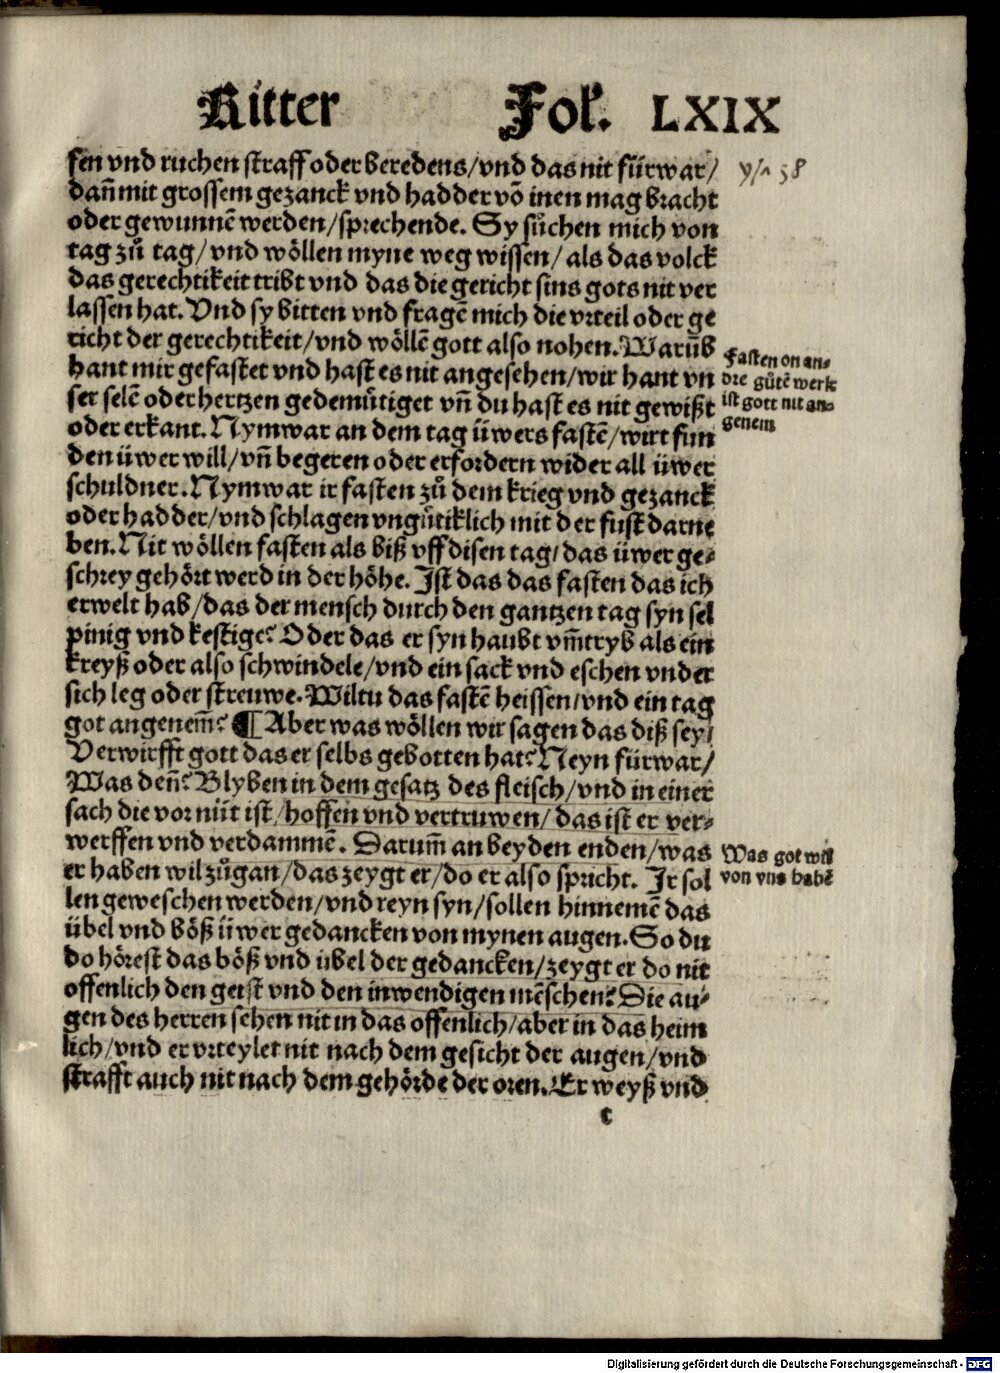 Ritter Fol. LXIX
sen vnd ruchen straff oder beredens/vnd das nit fürwar/
dañ mit grossem gezanck vnd hadder võ inen mag bracht
oder gewunnẽ werden/sprechende. Sy sůchen mich von
tag zů tag/vnd wöllen myne weg wissen/als das volck
das gerechtikeit tribt vnd das die gericht sins gots nit ver
lassen hat. Vnd sy bitten vnd fragẽ mich die vrteil oder ge
richt der gerechtikeit/vnd wöllẽ gott also nohen. Warũb
hant mir gefastet vnd hast es nit angesehen/wir hant vn
ser selẽ oder hertzen gedemůtiget vñ du hast es nit gewißt
oder erkant. Nym war an dem tag üwers fastẽ/wirt fun
den üwer will/vñ begeren oder erfordern wider all üwer
schuldner. Nym war ir fasten zů dem krieg vnd gezanck
oder hadder/vnd schlagen vngůtiklich mit der fust darne
ben. Nit wöllen fasten als biß vff disen tag/das üwer ge⸗
schrey gehört werd in der höhe. Ist das das fasten das ich
erwelt hab/das der mensch durch den gantzen tag syn sel
pinig vnd kestige? Oder das er syn haubt vm̃tryb als ein
kreyß oder also schwindele/vnd ein sack vnd eschen vnder
sich leg oder streuwe. Wiltu das fastẽ heissen/vnd ein tag
got angenem̃? ¶ Aber was wöllen wir sagen das diß sey/
Verwirfft gott das er selbs gebotten hat? Neyn fürwar/
Was deñ? Blyben in dem gesatz des fleisch/vnd in einer
sach die vor nüt ist/hoffen vnd vertruwen/das ist er ver⸗
werffen vnd verdammẽ. Darum̃ an beyden enden/was
er haben wil zůgan/das zeygt er/do er also spricht. Ir sol
len geweschen werden/vnd reyn syn/sollen hinnemẽ das
übel vnd böß üwer gedancken von mynen augen. So du
do hörest das böß vnd übel der gedancken/zeygt er do nit
offenlich den geist vnd den inwendigen mẽschen? Die au⸗
gen des herren sehen nit in das offenlich/aber in das heim
lich/vnd er vrteylet nit nach dem gesicht der augen/vnd
strafft auch nit nach dem gehörde der oren. Er weyß vnd
t
58
Fasten on an⸗
dre gůtẽ werk
ist gott nit an⸗
genem
Was got wil
von vns habẽ
Digitalisierung gefördert durch die Deutsche Forschungsgemeinschaft - DFG